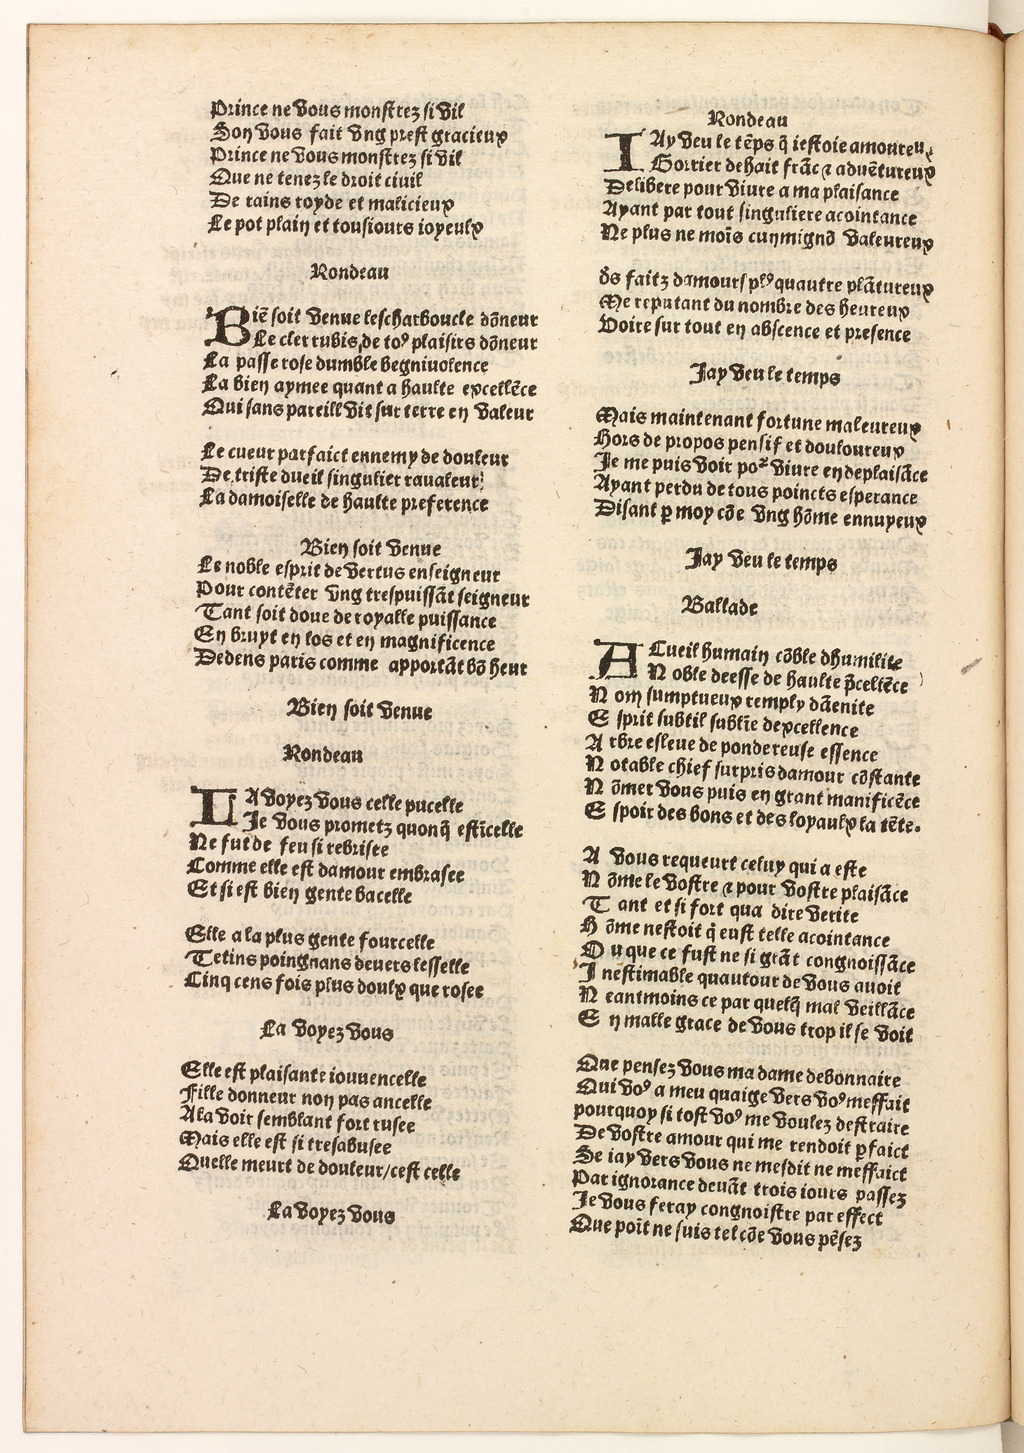 Prince ne vous monstrez si vil
Son vous fait vng prest gracieux
Prince ne vous monstrez si vil
Que ne tenez le droit ciuil
De rains royde et malicieux
Le pot plain et tousiours ioyeulx
Rondeau
Biē soit venue lescharboucle dōneur
Le cler rubis de toꝰ plaisirs dōneur
La passe rose dumble begniuolence
La bien aymee quant a haulte excellēce
Qui sans pareill vit sur terre en valeur
Le cueur parfaict ennemy de douleur
De triste dueil singulier raualeur
La damoiselle de haulte preference
Bien soit venue
Le noble esprit de vertus enseigneur
Pour contēter vng trespuissāt seigneur
Tant soit doue de royalle puissance
En bruyt en los et en magnificence
Dedens paris comme apportāt bō heur
Bien soit venue
Rondeau
LA voyez vous celle pucelle
Je vous prometz quonq̄ estīcelle
Ne fut de feu si rebrisee
Comme elle est damour embrasee
Et si est bien gente bacelle
Elle a la plus gente fourcelle
Tetins poingnans deuers lesselle
Cinq cens fois plus doulx que rosee
La voyez vous
Elle est plaisante iouuencelle
Fille donneur non pas ancelle
A la voir semblant fort rusee
Mais elle est si tresabusee
Quelle meurt de douleur/cest celle
La voyez vous
Rondeau
IAy veu le tēps q̄ iestoie amoureux
Gorrier de hait frāc ⁊ aduētureux
Delibere pour viure a ma plaisance
Ayant par tout singuliere acointance
Ne plus ne moīs cun mignō valeureux
Es faitz damours plꝰ quautre plātureux
Me reputant du nombre des heureux
Voire sur tout en abscence et presence
Jay veu le temps
Mais maintenant fortune maleureux
Hors de propos pensif et douloureux
Je me puis voir poᷣ viure en deplaisāce
Ayant perdu de tous poincts esperance
Disant ꝑ moy cōe vng hōme ennuyeux
Jay veu le temps
Ballade
ACueil humain cōble dhumilite
N oble deesse de haulte p̄cellēce
N om sumptueux remply dāenite
E sprit subtil sublīe dexcellence
A rbre esleue de pondereuse essence
N otable chief surpris damour cōstante
N ōmer vous puis en grant manificēce
E spoir des bons et des loyaulx la tēte.
A vous requeurt celuy qui a este
N ōme le vostre ⁊ pour vostre plaisāce
T ant et si fort qua dire verite
H ōme nestoit q̄ eust telle acointance
O u que ce fust ne si grāt congnoissāce
I nestimable quautour de vous auoit
N eantmoins ce par quelq̄ mal veillāce
E n malle grace de vous trop il se voit
Que pensez vous ma dame debonnaire
Qui voꝰ a meu quaige vers voꝰ meffait
pourquoy si tost voꝰ me voulez destraire
De vostre amour qui me rendoit ꝑfaict
Se iay vers vous ne mesdit ne meffaict
Par ignorance deuāt trois iours passez
Je vous feray congnoistre par effect
Que poīt ne suis tel cōe vous pēsez